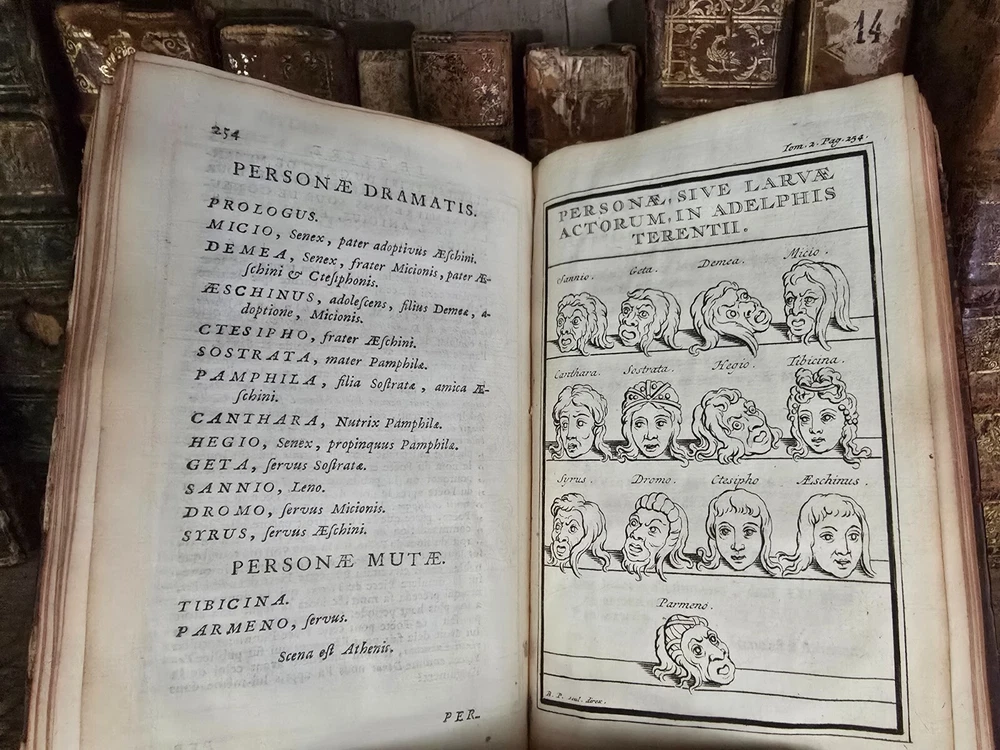 14
254
PERSONÆ DRAMATIS.
PROLOGUS.
MICIO, Senex, pater adoptivus Æſchini.
DEMEA, Senex, frater Micionis, pater Æ-
ſchini & Cteſiphonis.
ÆSCHINUS, adoleſcens, filius Demeæ, a-
doptione, Micionis.
CTESIPHO, frater Æſchini.
SOSTRATA, mater Pamphilæ.
PAMPHILA, filia Soſtratæ, amica Æ-
ſchini.
CANTHARA, Nutrix Pamphilæ.
HEGIO, Senex, propinquus Pamphilæ.
GETA, ſervus Soſtratæ.
SANNIO, Leno.
DROMO, ſervus Micionis.
SYRUS, ſervus Æſchini.
PERSONÆ MUTÆ.
TIBICINA.
PARMENO, ſervus.
Scena eſt Athenis.
PER-
Tom. 2. Pag. 254.
PERSONÆ, SIVE LARVÆ
ACTORUM, IN ADELPHIS
TERENTII.
Sannio. Geta. Demea. Micio.
Canthara. Sostrata. Hegio. Tibicina.
Syrus. Dromo. Ctesipho Æschinus.
Parmeno.
B. P. scul. direx.